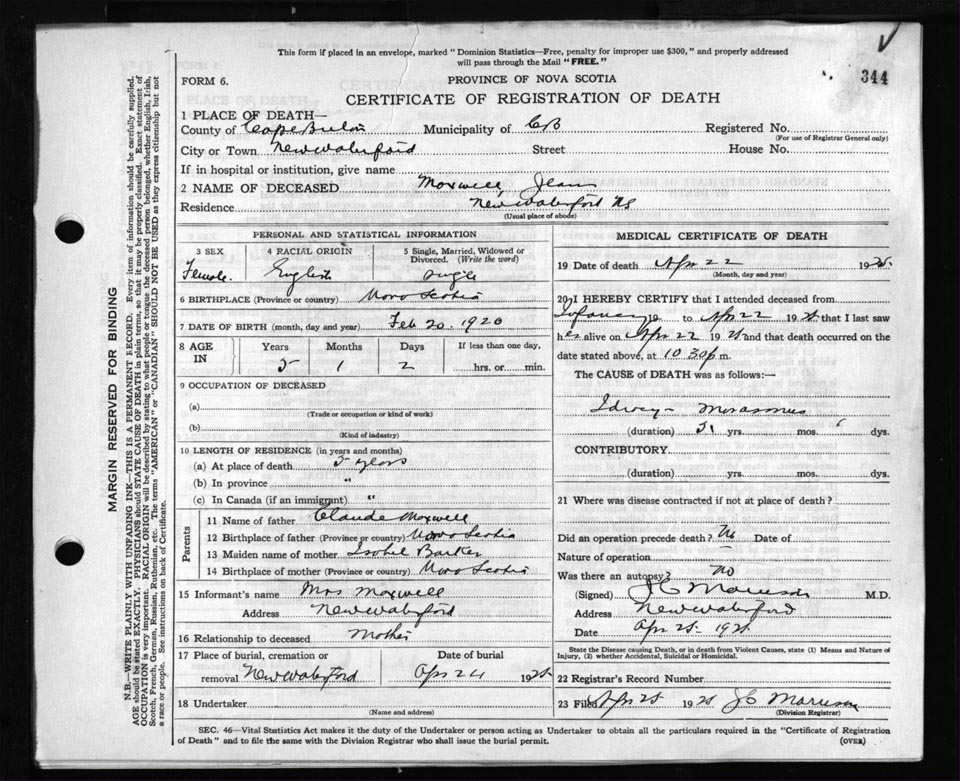 This form if placed in an envelope, marked "Dominion Statistics—Free, penalty for improper use $300," and properly addressed
will pass through the Mail "FREE."
344
FORM 6.
PROVINCE OF NOVA SCOTIA
CERTIFICATE OF REGISTRATION OF DEATH
1 PLACE OF DEATH—
County of Cape Breton Municipality of CB Registered No.
(For use of Registrar General only)
City or Town New Waterford Street House No.
If in hospital or institution, give name
2 NAME OF DECEASED Maxwell Jean
Residence New Waterford NS
(Usual place of abode)
PERSONAL AND STATISTICAL INFORMATION
3 SEX 4 RACIAL ORIGIN 5 Single, Married, Widowed or Divorced. (Write the word)
Female. English Single
6 BIRTHPLACE (Province or country) Nova Scotia
7 DATE OF BIRTH (month, day and year) Feb 20. 1920
8 AGE IN Years Months Days If less than one day,
5 1 2 hrs. or min.
9 OCCUPATION OF DECEASED
(a)
(Trade or occupation or kind of work)
(b)
(Kind of industry)
10 LENGTH OF RESIDENCE (in years and months)
(a) At place of death 5 years
(b) In province "
(c) In Canada (if an immigrant) "
Parents
11 Name of father Claude Maxwell
12 Birthplace of father (Province or country) Nova Scotia
13 Maiden name of mother Isobel Barker
14 Birthplace of mother (Province or country) Nova Scotia
15 Informant's name Mrs Maxwell
Address New Waterford
16 Relationship to deceased Mother
17 Place of burial, cremation or Date of burial
removal New Waterford Apr 24 1925
18 Undertaker
(Name and address)
MEDICAL CERTIFICATE OF DEATH
19 Date of death Apr 22 1925
(Month, day and year)
20 I HEREBY CERTIFY that I attended deceased from
Infancy 19 to Apr 22 1925 that I last saw
her alive on Apr 22 1925 and that death occurred on the
date stated above, at 10 30 p m.
The CAUSE of DEATH was as follows:—
Marasmus
(duration) 5 yrs. mos. dys.
CONTRIBUTORY
(duration) yrs. mos. dys.
21 Where was disease contracted if not at place of death?
Did an operation precede death? No Date of
Nature of operation
Was there an autopsy? No
(Signed) M.D.
Address New Waterford
Date Apr 25 1925
State the Disease causing Death, or in death from Violent Causes, state (1) Means and Nature of
Injury, (2) whether Accidental, Suicidal or Homicidal.
22 Registrar's Record Number
23 Filed Apr 25 1925
(Division Registrar)
SEC. 46—Vital Statistics Act makes it the duty of the Undertaker or person acting as Undertaker to obtain all the particulars required in the "Certificate of Registration
of Death" and to file the same with the Division Registrar who shall issue the burial permit. (OVER)
MARGIN RESERVED FOR BINDING
N.B.—WRITE PLAINLY WITH UNFADING INK—THIS IS A PERMANENT RECORD. Every item of information should be carefully supplied.
AGE should be stated EXACTLY. PHYSICIANS should STATE CAUSE OF DEATH in plain terms, so that it may be properly classified. Exact statement of
OCCUPATION is very important. RACIAL ORIGIN will be described by stating to what people or tongue the deceased person belonged, whether English, Irish,
Scotch, French, German, Russian, Ruthenian, etc. The terms "AMERICAN" or "CANADIAN" SHOULD NOT BE USED as they express citizenship but not
a race or people. See instructions on back of Certificate.